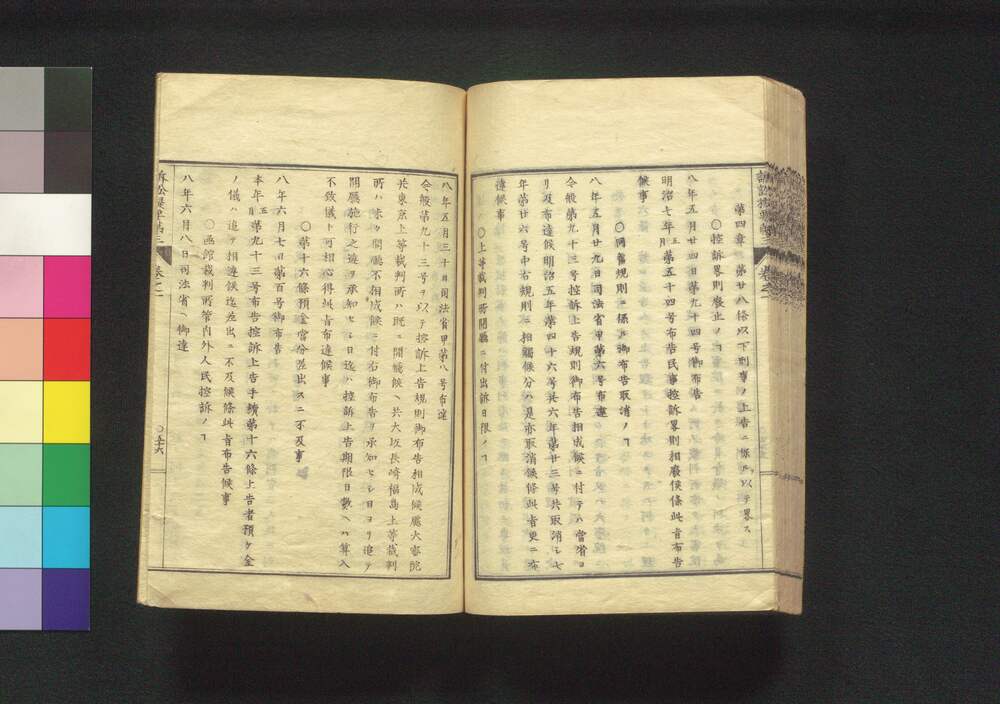 第四章 第廿八條以下刑事ノ上告ニ係ルヲ以テ畧ス
○控訴畧則廢止ノヿ
八年五月廿四日第九十四号御布告
明治七年五月第五十四号布告民事控訴畧則相廢候條此旨布告
候事
○同省規則ニ係ル御布告取消ノヿ
八年五月廿九日司法省甲第六号布達
令般第九十三号控訴上告規則御布告相成候ニ付テハ當省ヨ
リ及布達候明治五年第四十六号同六年第廿三号共取消シ七
年第廿六号中右規則ニ相觸候分ハ是亦取消候條此旨更ニ布
達候事
○上等裁判所開廳ニ付出訴日限ノヿ
八年五月三十日司法省甲第八号布達
令般第九十三号ヲ以テ控訴上告規則御布告相成候處大審院
并東京上等裁判所ハ既ニ開廳候ヘ共大坂長崎福島上等裁判
所ハ未タ開廳不相成候ニ付右御布告ヲ承知セシ日ヨリ追テ
開廳施行之達ヲ承知セシ日迄ハ控訴上告期限日數ヘハ算入
不致儀ト可相心得此旨布達候事
○第十六條預金當分差出スニ不及事
八年六月七日第百号御布告
本年五月第九十三号布告控訴上告手續第十六條上告者預ケ金
ノ儀ハ追テ相達候迄差出ニ不及候條此旨布告候事
○函館裁判所管内外人民控訴ノヿ
八年六月八日司法省ヘ御達
卷之二
○五十六